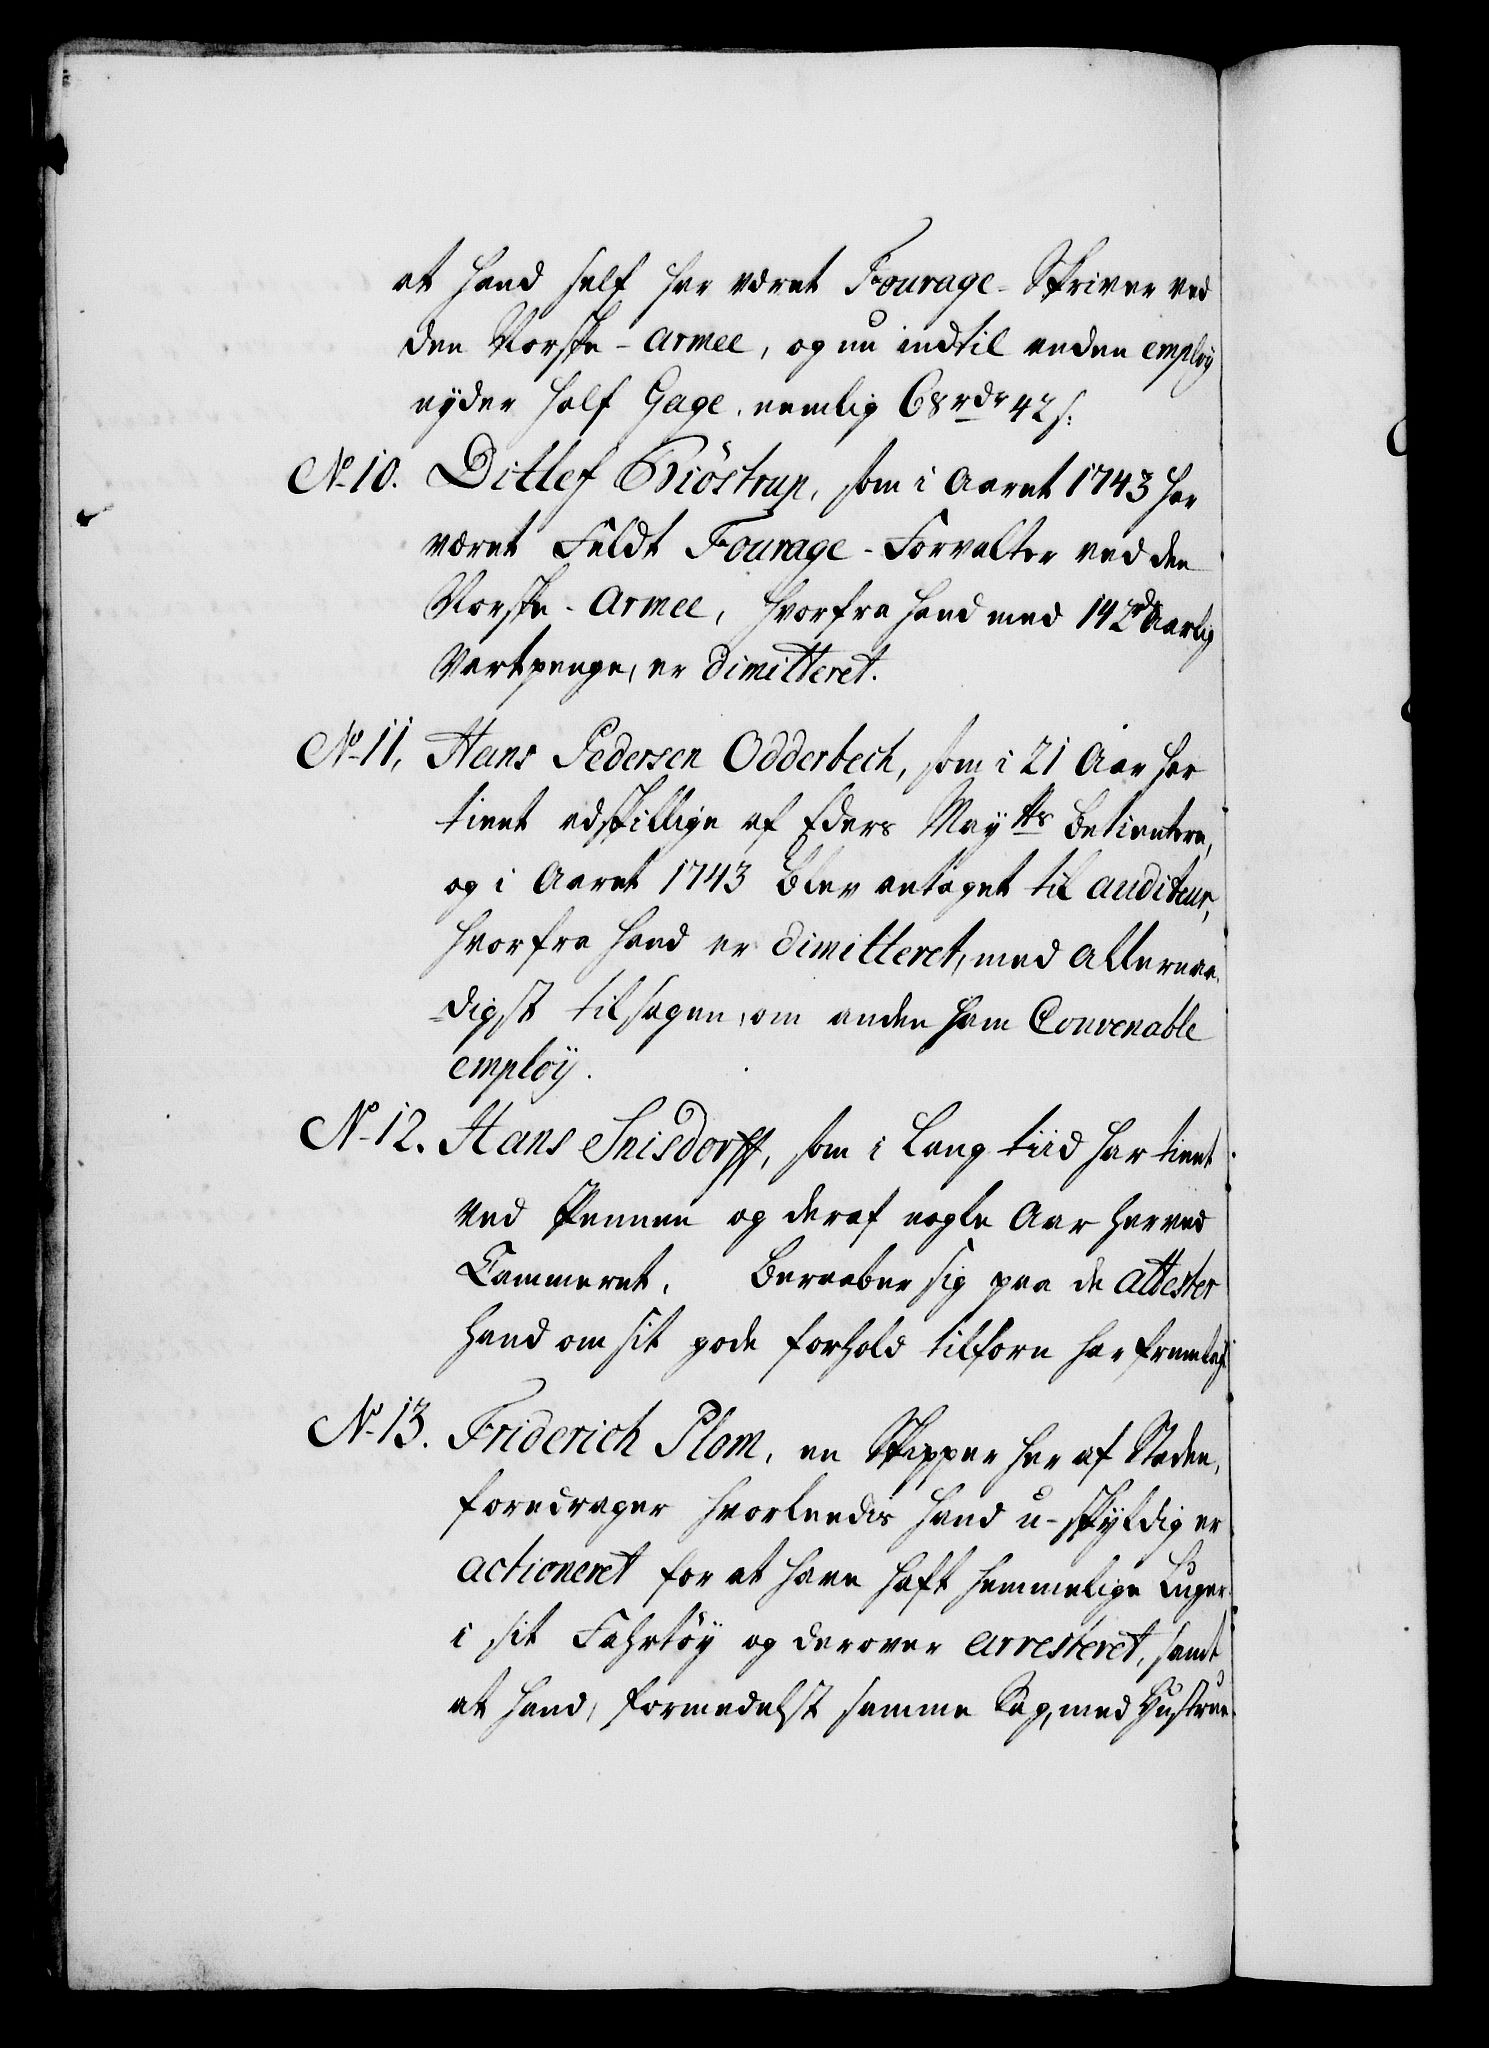 at hand self har været Fourage-Skriver ved
den Norske-Armee, og nu indtil anden employ
nyder half Gage, nemlig 68 rdr 42 s:
No 10. Ditlef Briöstrup, som i Aaret 1743 har
været Feldt Fourage-Forvalter ved den
Norske-Armee, hvorfra hand med 142 rdr Aarlig
Vartpenge, er dimitteret.
No 11, Hans Pedersen Odderbech, som i 21 Aar har
tient adskillige af Eders Mayts betientere,
og i Aaret 1743 blev antaget til auditeur,
hvorfra hand er dimitteret, med Allernaa-
digst tilsagen, om anden ham Convenable
employ.
No 12. Hans Snisdorff, som i Lang tiid har tient
ved Pennen og deraf nogle Aar her ved
Cammeret. Beraaber sig paa de attester
hand om sit gode forhold tilforn har fremlagt
No 13. Friderich Plom, en Skipper her af Staden,
foredrager hvorleedis hand u-skyldig er
actioneret for at have haft hemmelige Luger
i sit Fahrtöy og derover arresteret, samt
at hand, formedelst samme Sag, med Hustrue